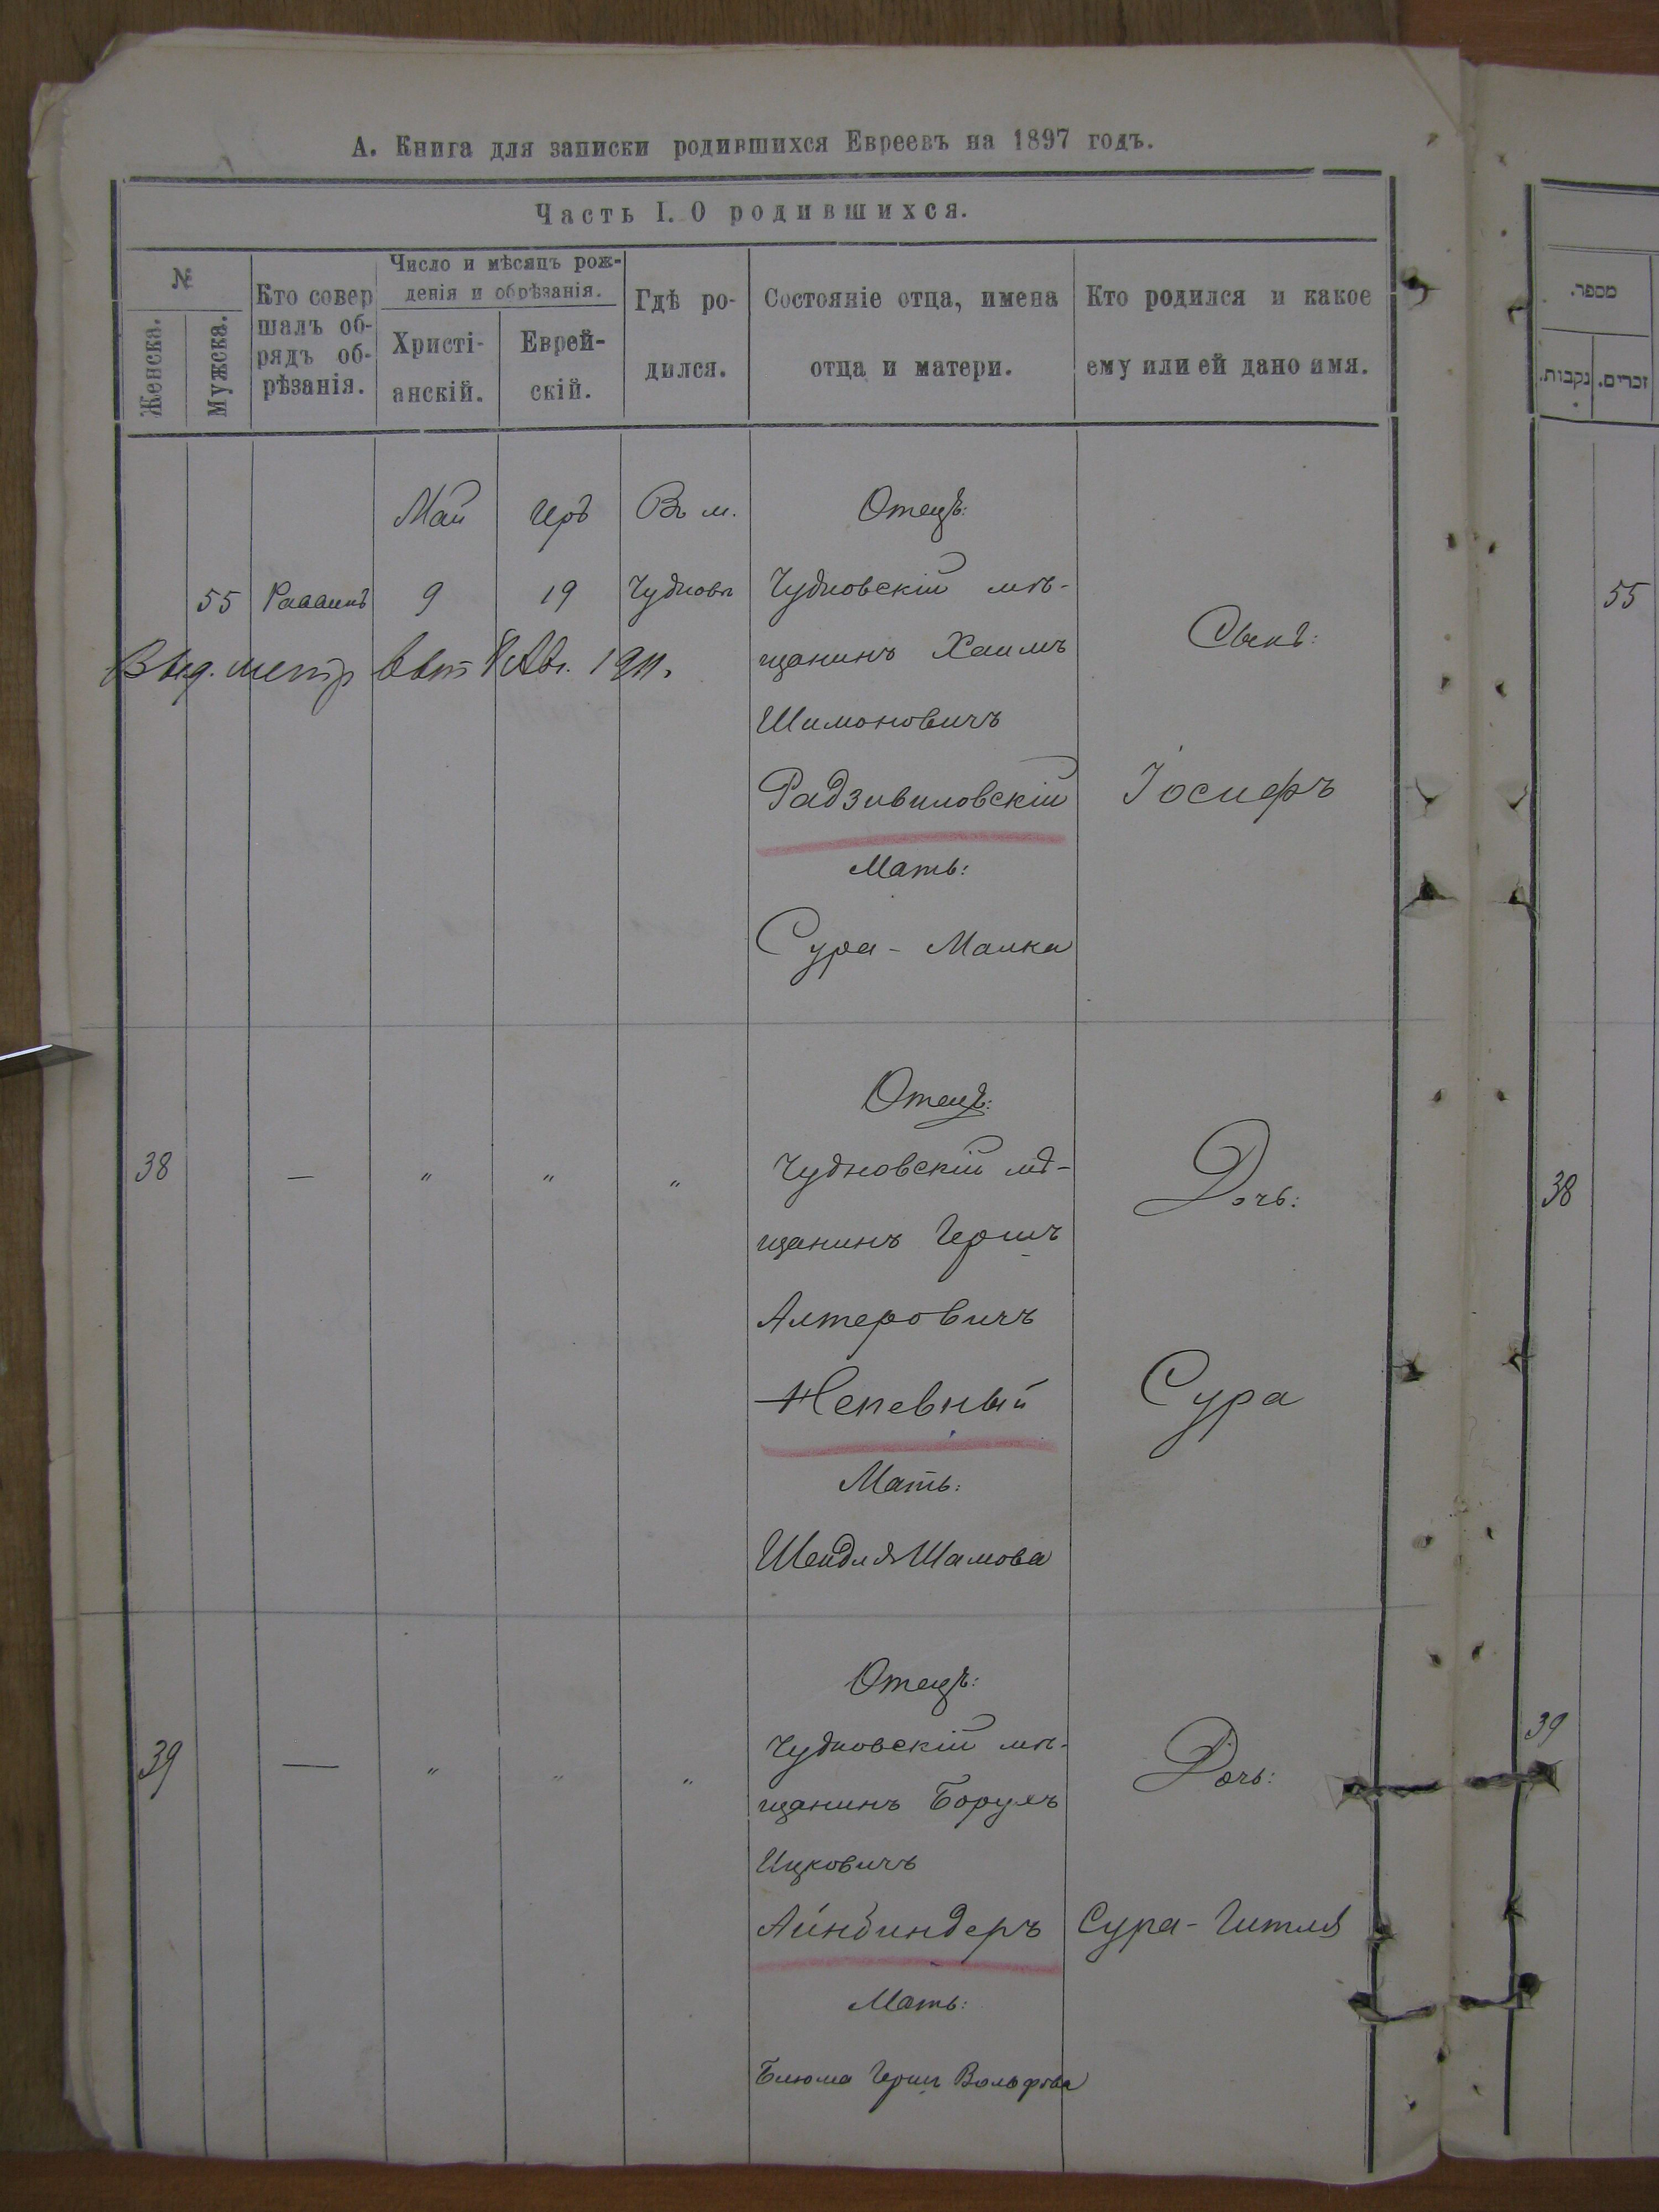 А. Книга для записки родившихся Евреевъ на 1897 годъ.
Часть I. О родившихся.
№
Женска.
Мужска.
Кто совер
шалъ об-
рядъ об-
рѣзанія.
Число и мѣсяцъ рож-
денія и обрѣзанія.
Христі-
анскій.
Еврей-
скій.
Гдѣ ро-
дился.
Состояніе отца, имена
отца и матери.
Кто родился и какое
ему или ей дано имя.
Май
Іръ
Въ м.
Отецъ:
55
Раввинъ
9
19
Чудновѣ
Чудновскій мѣ-
щанинъ Хаимъ
Шимоновичъ
Радзивиловскій
Мать:
Сура - Малка
Сынъ:
Іосифъ
Выд. метр 1911.
38
—
"
"
"
Отецъ:
Чудновскій мѣ-
щанинъ Гершъ
Алтеровичъ
Непевный
Мать:
Шейдля Шамова
Дочь:
Сура
39
—
"
"
"
Отецъ:
Чудновскій мѣ-
щанинъ Борухъ
Ицковичъ
Айнбиндеръ
Мать:
Блюма Герш Вольфова
Дочь:
Сура - Гитля
מספר.
נקבות.
זכרים.
55
38
39